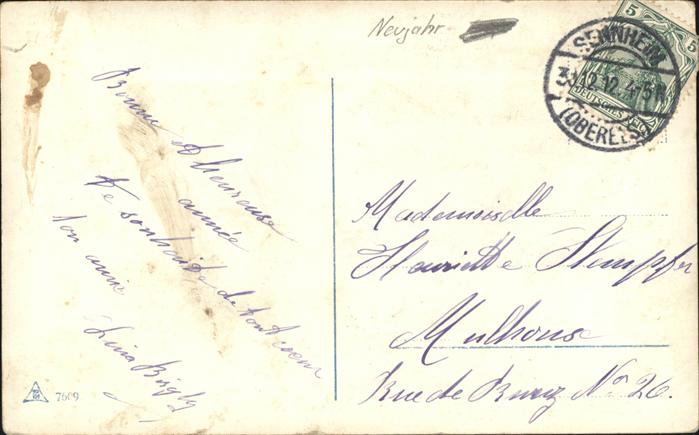 Neujahr
5
5
DEUTSCHES REICH
SENNHEIM
31.12.12. 4-5 N
(OBERELS.)
Bonne et heureuse
année
Te souhaite de tout coeur
ton amie
Mademoiselle
Henriette Stempfer
Mulhouse
Rue de No 26.
7609